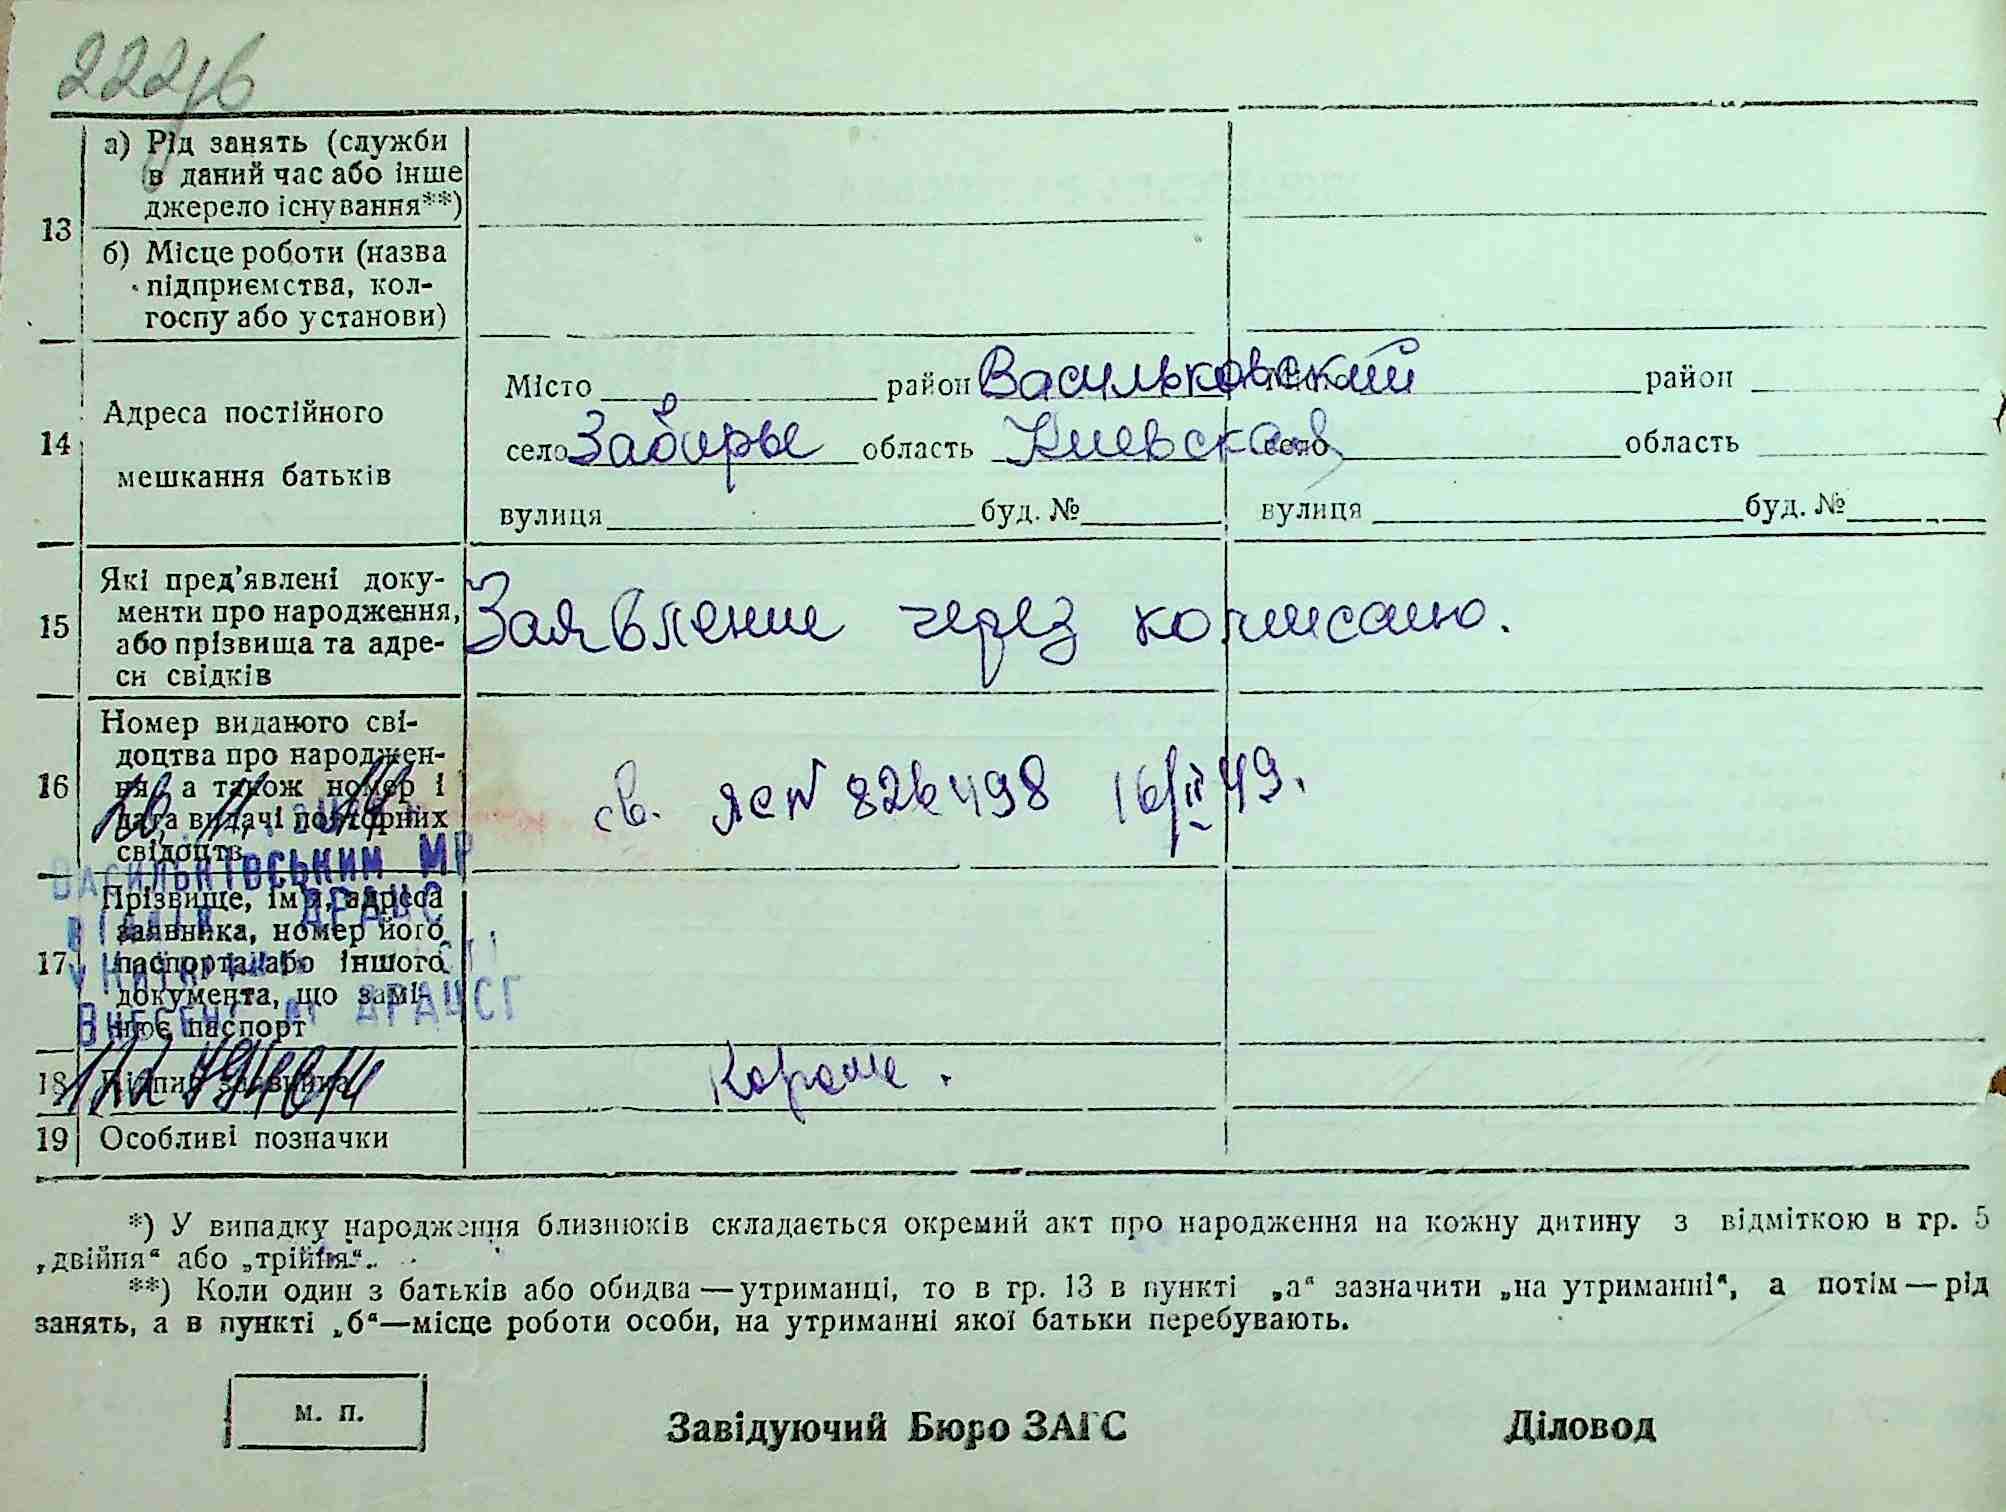 а) Рід занять (служби
в даний час або інше
джерело існування**)
13
б) Місце роботи (назва
підприємства, кол-
госпу або установи)
Місто район Васильковский район
14 Адреса постійного
село Забирье область Киевская село область
мешкання батьків
вулиця буд. № вулиця буд. №
Які пред'явлені доку-
менти про народження,
15 або прізвища та адре-
си свідків
Заявление через комиссию.
Номер виданого сві-
доцтва про народжен-
16 ня, а також номер і
дата видачі повторних
свідоцтв
св. ЯС № 826498 16/II 49.
ВАСИЛЬКІВСЬКИМ МР
Прізвище, ім'я, адреса
заявника, номер його
17 паспорта або іншого
документа, що замі-
нює паспорт
ВНЕСЕНО ДРАЦСГ
18 Підпис заявника
19 Особливі позначки
*) У випадку народження близнюків складається окремий акт про народження на кожну дитину з відміткою в гр. 5
„двійня“ або „трійня“.
**) Коли один з батьків або обидва — утриманці, то в гр. 13 в пункті „а“ зазначити „на утриманні“, а потім — рід
занять, а в пункті „б“—місце роботи особи, на утриманні якої батьки перебувають.
м. п.
Завідуючий Бюро ЗАГС Діловод